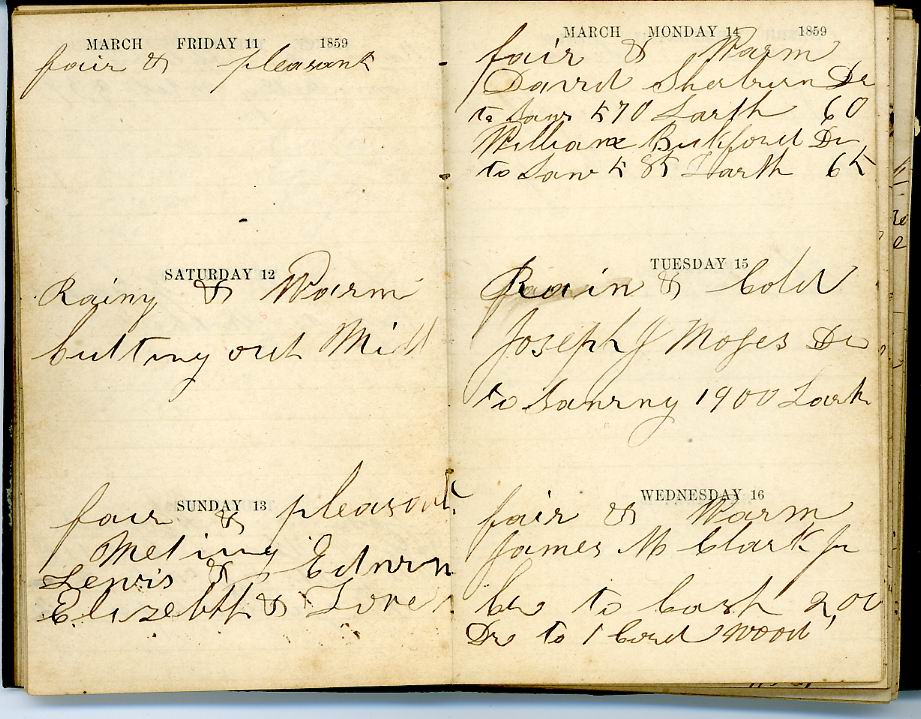 MARCH FRIDAY 11 1859
fair & pleasant
SATURDAY 12
Rainy & Warm
Cutting out Mill
SUNDAY 13
fair & pleasant
Meting
Lewis & Edwin
Elizebth &
MARCH MONDAY 14 1859
fair & Warm
David Sherburn Dr
to Saw 570 Larth 60
William Bickford Dr
to Saw 5 85 Larth 65
TUESDAY 15
Rain & Cold
Joseph J Moses Dr
to Sawing 1900 Larth
WEDNESDAY 16
fair & Warm
James M Clark Jr
Cr to Cash 2,00
Dr to 1 Cord Wood